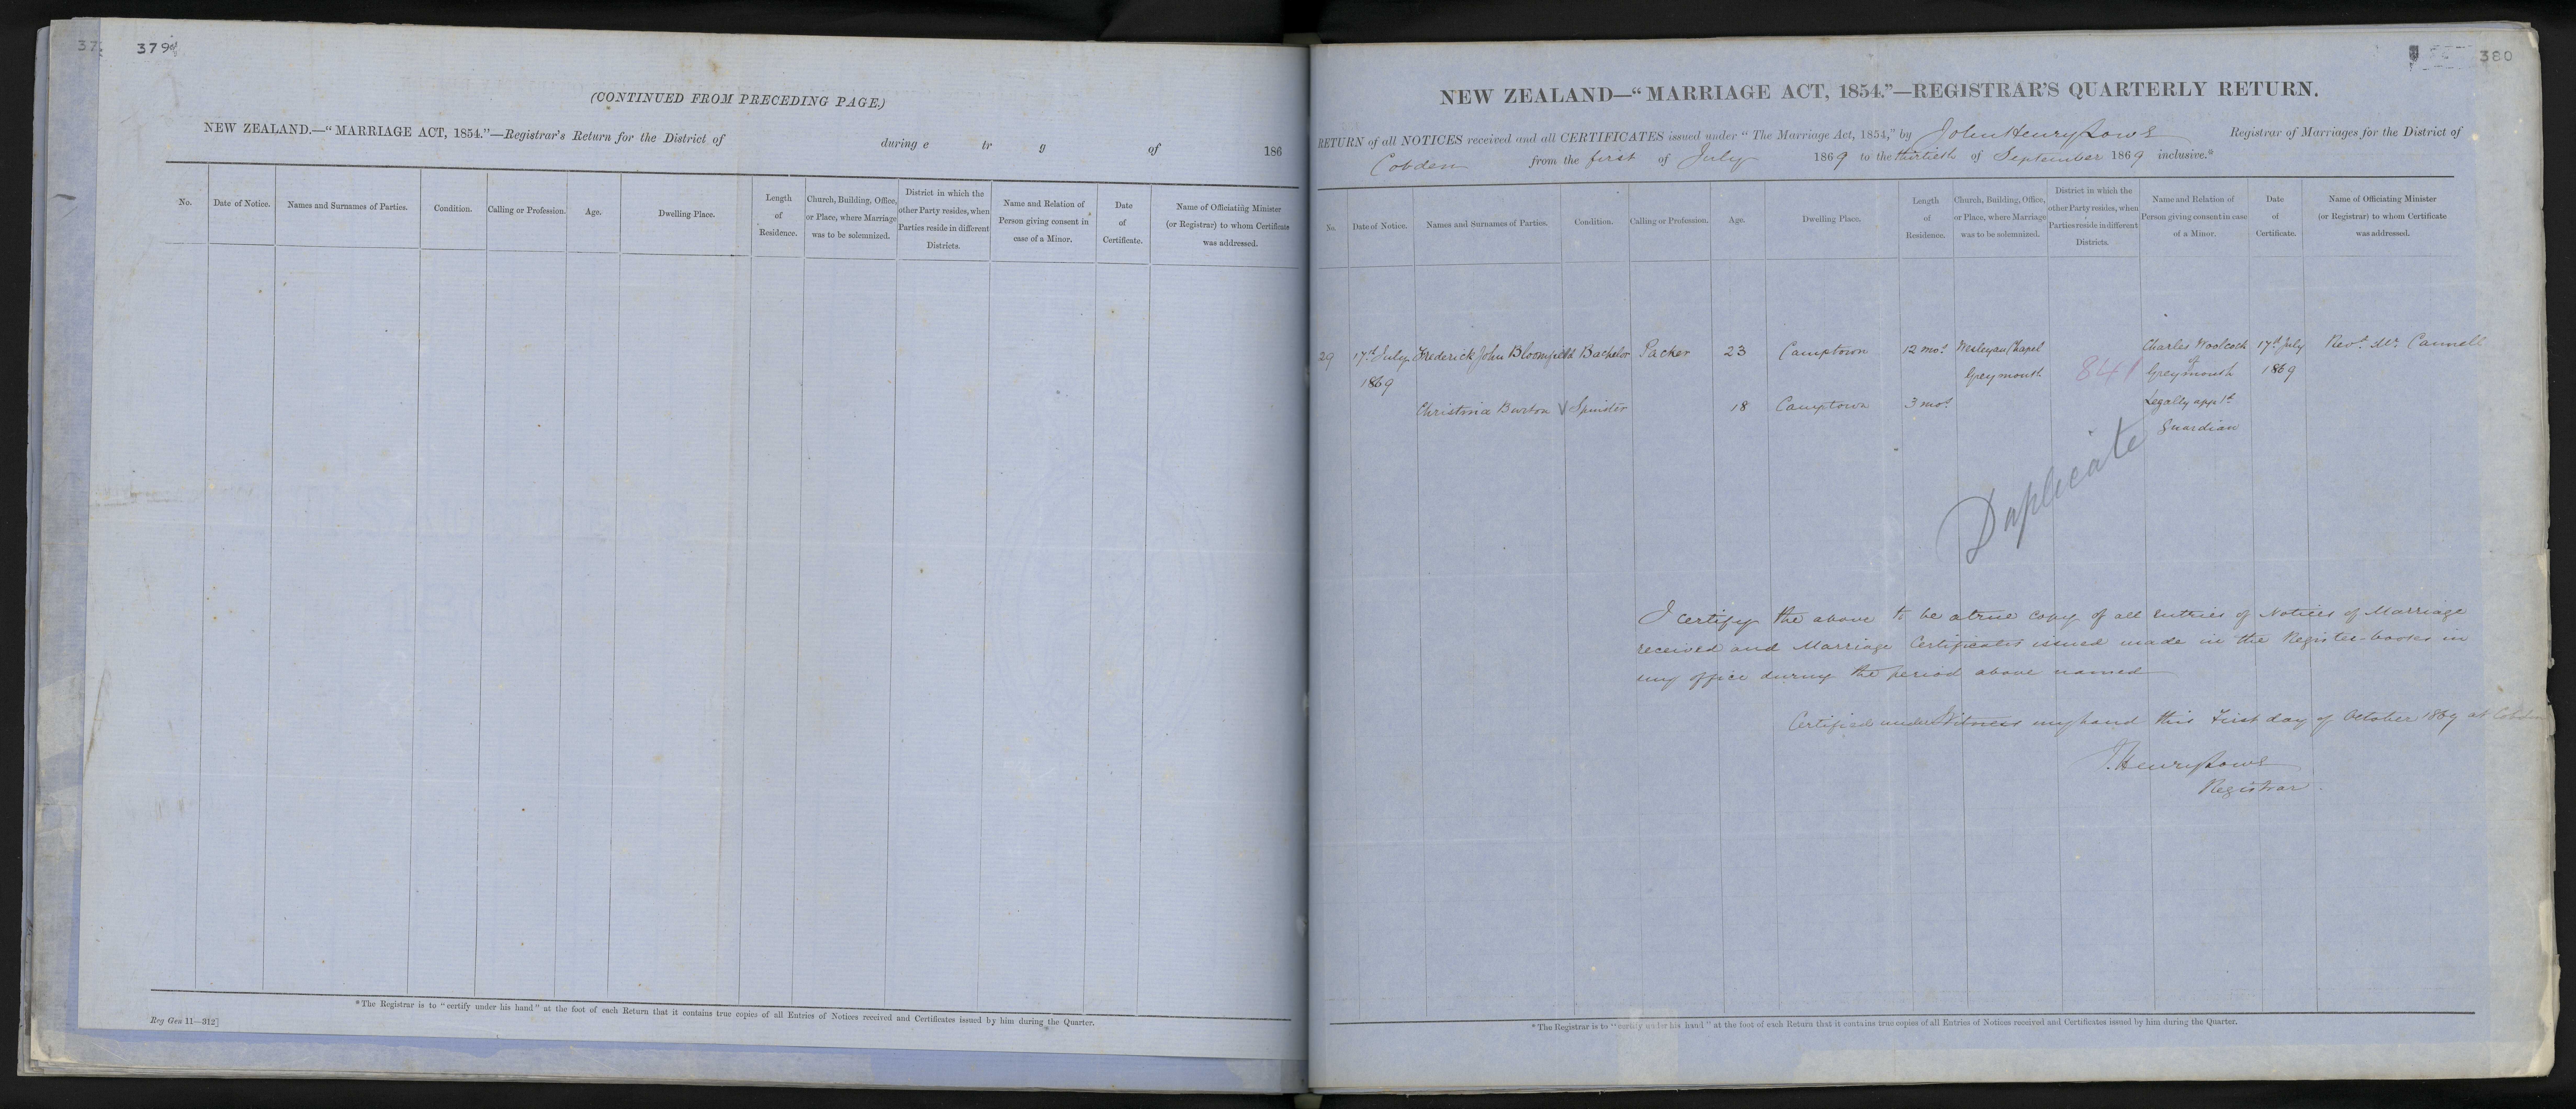 379
(CONTINUED FROM PRECEDING PAGE.)
NEW ZEALAND.—"MARRIAGE ACT, 1854."—Registrar's Return for the District of during e tr g of 186
No.
Date of Notice.
Names and Surnames of Parties.
Condition.
Calling or Profession.
Age.
Dwelling Place.
Length
of
Residence.
Church, Building, Office,
or Place, where Marriage
was to be solemnized.
District in which the
other Party resides, when
Parties reside in different
Districts.
Name and Relation of
Person giving consent in
case of a Minor.
Date
of
Certificate.
Name of Officiating Minister
(or Registrar) to whom Certificate
was addressed.
*The Registrar is to "certify under his hand" at the foot of each Return that it contains true copies of all Entries of Notices received and Certificates issued by him during the Quarter.
Reg Gen 11—312]
380
NEW ZEALAND—"MARRIAGE ACT, 1854."—REGISTRAR'S QUARTERLY RETURN.
RETURN of all NOTICES received and all CERTIFICATES issued under "The Marriage Act, 1854," by John Henry Lowe Registrar of Marriages for the District of
Cobden from the first of July 1869 to the thirtieth of September 1869 inclusive.*
No.
Date of Notice.
Names and Surnames of Parties.
Condition.
Calling or Profession.
Age.
Dwelling Place.
Length
of
Residence.
Church, Building, Office,
or Place, where Marriage
was to be solemnized.
District in which the
other Party resides, when
Parties reside in different
Districts.
Name and Relation of
Person giving consent in case
of a Minor.
Date
of
Certificate.
Name of Officiating Minister
(or Registrar) to whom Certificate
was addressed.
29 17th July Frederick John Bloomfield Bachelor Packer 23 Camptown 12 mos. Wesleyan Chapel Charles Woolcock 17th July Revd. Mr. Cannell
1869 Greymouth 841 of Greymouth 1869
Christina Burton V Spinster 18 Camptown 3 mos. Legally appt'd
Guardian
Duplicate
I certify the above to be a true copy of all Entries of Notices of Marriage
received and Marriage Certificates issued made in the Register-books in
my office during the period above named
Certified under Witness my hand this First day of October 1869 at Cobden
J. Henry Lowe
Registrar.
*The Registrar is to "certify under his hand" at the foot of each Return that it contains true copies of all Entries of Notices received and Certificates issued by him during the Quarter.